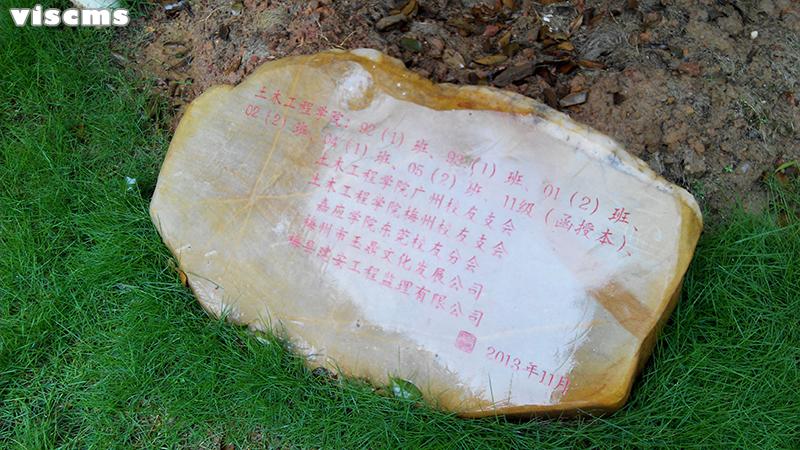 viscms
土木工程学院：92（1）班、93（1）班、01（2）班、
02（2）班、04（1）班、05（2）班、11级（函授本）、
土木工程学院广州校友支会
土木工程学院梅州校友支会
嘉应学院东莞校友分会
梅州市玉景文化发展公司
梅县建安工程监理有限公司
2013年11月